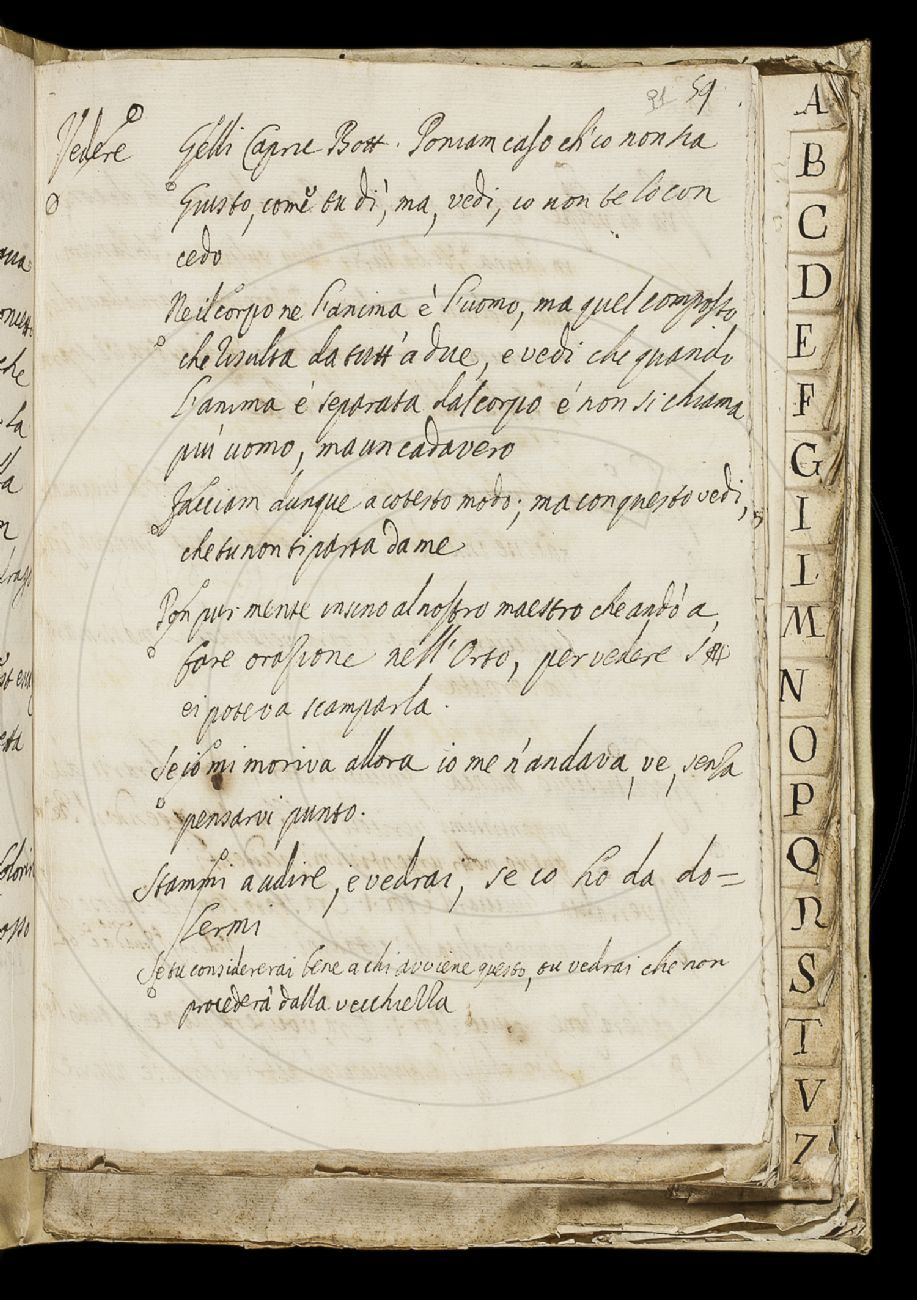 59
Vedere
Gelli Capric Bott. Poniam caso ch'io non sia
Giusto, come tu dì, ma, vedi, io non te lo con
cedo
Ne il corpo ne l'anima è l'uomo, ma quel composto
che risulta da tutt'a due, e vedi che quando
l'anima é separata dal corpo é non si chiama
piu' uomo, ma un cadavero
Facciam dunque a cotesto modo; ma con questo vedi,
che tu non ti parta da me
Pon pur mente insino al nostro maestro che andò a
fare orazione nell'Orto, per vedere s'
ei poteva scamparla.
Se io mi moriva allora io me n'andava, ve, senza
pensarvi punto.
Stammi a udire, e vedrai, se io ho da do=
lermi
Se tu considererai bene a chi avviene questo, tu vedrai che non
procederà dalla vecchiezza
A
B
C
D
E
F
G
I
L
M
N
O
P
Q
R
S
T
V
Z